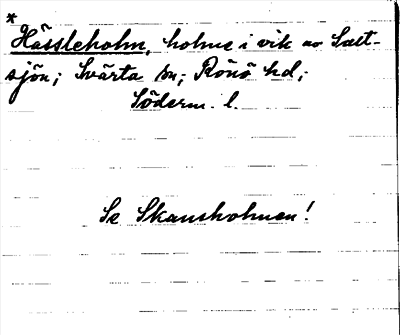 *
Hässleholm, holme i vik av Salt-
sjön; Svärta sn; Rönö hd;
Söderm. l.
Se Skansholmen!